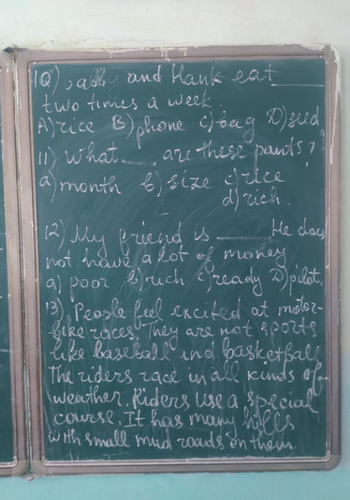 10) and Hank eat ___
two times a week.
A) rice B) phone c) bag D) seed
11) What ___ are these pants?
a) month b) size c) rice
d) rich.
12) My friend is ___ He does
not have a lot of money
a) poor b) rich c) ready D) pilot,
13) People feel excited at motor-
bike races. They are not sports
like baseball and basketball
The riders race in all kinds of
weather. Riders use a special
course. It has many hills
with small mud roads on them.